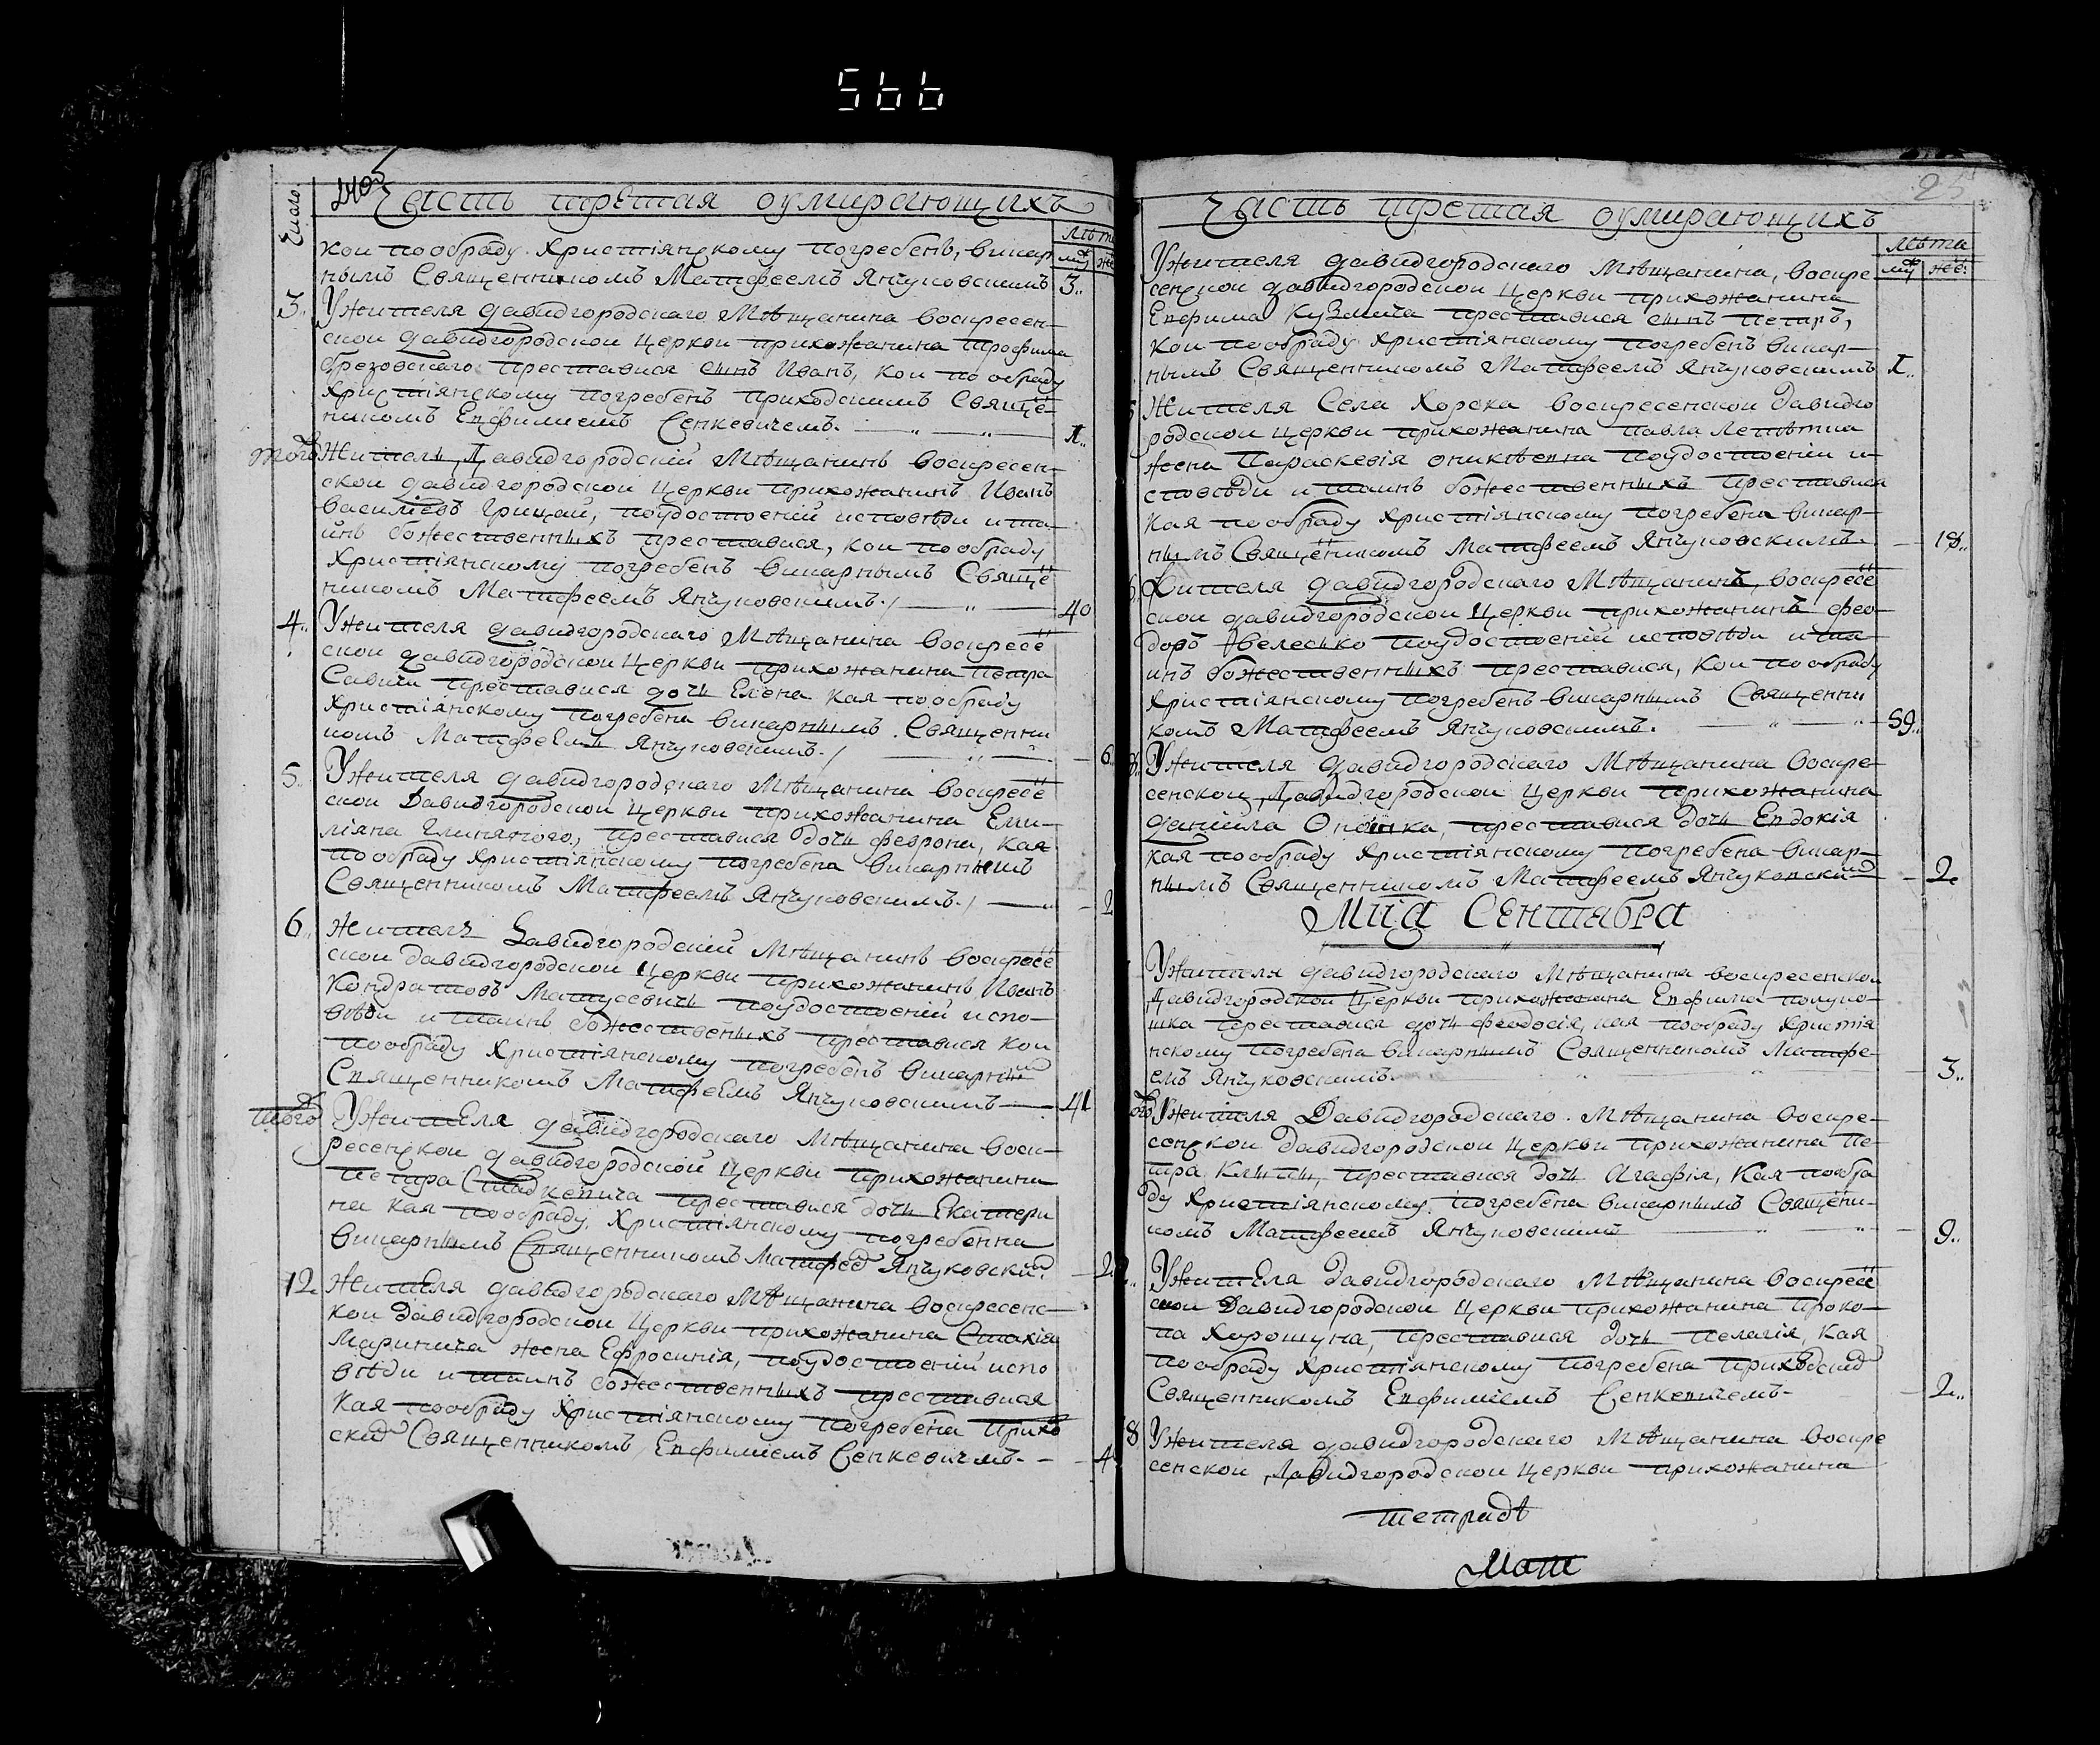 566
Число
Часть третая оумирающихъ
лѣта
муж
кои пообраду Христіянскому погребенъ, викар
нымъ Священникомъ Матфеемъ Янчуковскимъ 3..
3.. Ужителя давидгородскаго Мѣщанина воскресен-
скои давидгородскои Церкви прихожанина Трофима
брезовскаго преставися сынъ Иванъ, кои по обраду
Христіянскому погребенъ приходскимъ Свяще-
никомъ Евфимиемъ Сенкевичемъ. 1..
того Житель Давидгородскій Мѣщанинъ воскресен-
скои давидгородскои Церкви прихожанинъ Иванъ
василіевъ Грицай, поудостоеніи исповѣди ита-
инъ божественныхъ преставися, кои пообраду
Христіянскому погребенъ викарнымъ Свяще
никомъ Матфеемъ Янчуковскимъ. 40
4.. Ужителя давидгородскаго Мѣщанина воскресе
скои давидгородскои Церкви прихожанина Петра
Савича преставися дочь Елена кая пообраду
Христіянскому погребена викарнымъ Священни
комъ Матфеемъ Янчуковскимъ. 6
5.. Ужителя давидгородскаго Мѣщанина воскресе
скои Давидгородскои Церкви прихожанина Еми-
ліяна Глиняного, преставися дочь феврона, кая
пообраду Христіянскому погребена викарнымъ
Священникомъ Матфеемъ Янчуковскимъ. 2
6.. житель Давидгородскій Мѣщанинъ воскресе
скои давидгородскои Церкви прихожанинъ Иванъ
Кондратовъ Матусевичь поудостоеніи испо-
вѣди и таинъ божественыхъ преставися кои
пообраду Христіянскому погребенъ викарны
Священникомъ Матфеемъ Янчуковскимъ 41
того Ужителя давидгородскаго Мѣщанина воск-
ресенскои давидгородскои Церкви прихожанина
петра Стадкевича преставися дочь Екатери
на кая пообраду Христіянскому погребенна
викарнымъ Священникомъ Матфее Янчуковски. 2
12. Жителя давидгородскаго Мѣщанина воскресенс-
кои Давидгородскои Церкви прихожанина Стахіи
Маринича жена Ефросинія, поудостоеніи испо
вѣди и таинъ божественныхъ преставися
Кая пообраду Христіянскому погребена прихо
ски Священникомъ Евфимиемъ Сенкевичемъ. 4
25
Часть третая оумирающихъ
лѣта
муж жен
Ужителя давидгородскаго Мѣщанина, воскре-
сенскои давидгородскои Церкви прихожанина
Евфима Кузмича преставися сынъ петръ,
кои пообраду Христіянскому погребенъ викар-
нымъ Священникомъ Матфеемъ Янчуковскимъ 1..
Жителя Села Хорска воскресенскои давидго
родскои Церкви прихожанина павла Лепѣтиа
жена Параскевія оникѣевна поудостоеніи и-
споведи и таинъ божественныхъ преставися
кая пообраду Христіянскому погребена викар-
нымъ Священикомъ Матфеемъ Янчуковскимъ. 18..
Жителя давидгородскаго Мѣщанинъ, воскресе
скои давидгородскои Церкви прихожанинъ фео-
доръ Велесько поудостоеніи исповѣди ита
инъ божественныхъ преставися, кои пообраду
Христіянскому погребенъ викарнымъ Священни
комъ Матфеемъ Янчуковскимъ. 59..
8. Ужителя давидгородскаго Мѣщанина воскре-
сенскои Давидгородскои Церкви прихожанина
даніила преставися дочь Евдокія
кая пообраду Христіянскому погребена викар-
нымъ Священникомъ Матфеемъ Янчуковски 2.
Мца Сентабра
Ужителя давидгородскаго Мѣщанина воскресенско
Давидгородскои Церкви прихожанина Евфима полуно-
шка преставися дочь феодосія, кая пообраду Христія
нскому погребена викарнымъ Священникомъ Матфе-
емъ Янчуковскимъ. 3..
Ужителя Давидгородскаго Мѣщанина воскре-
сенскои давидгородскои Церкви прихожанина пе-
тра преставися дочь Агафія, кая пообра
ду Христіянскому погребена викарнымъ Священи-
комъ Матфеемъ Янчуковскимъ 9..
Ужителя давидгородскаго Мѣщанина воскресе
скои Давидгородскои Церкви прихожанина проко-
па Хорошуна, преставися дочь пелагія, кая
пообраду Христіянскому погребена приходски
Священникомъ Евфиміемъ Сенкевичемъ. 2..
8 Ужителя давидгородскаго Мѣщанина воскре
сенскои Давидгородскои Церкви прихожанина